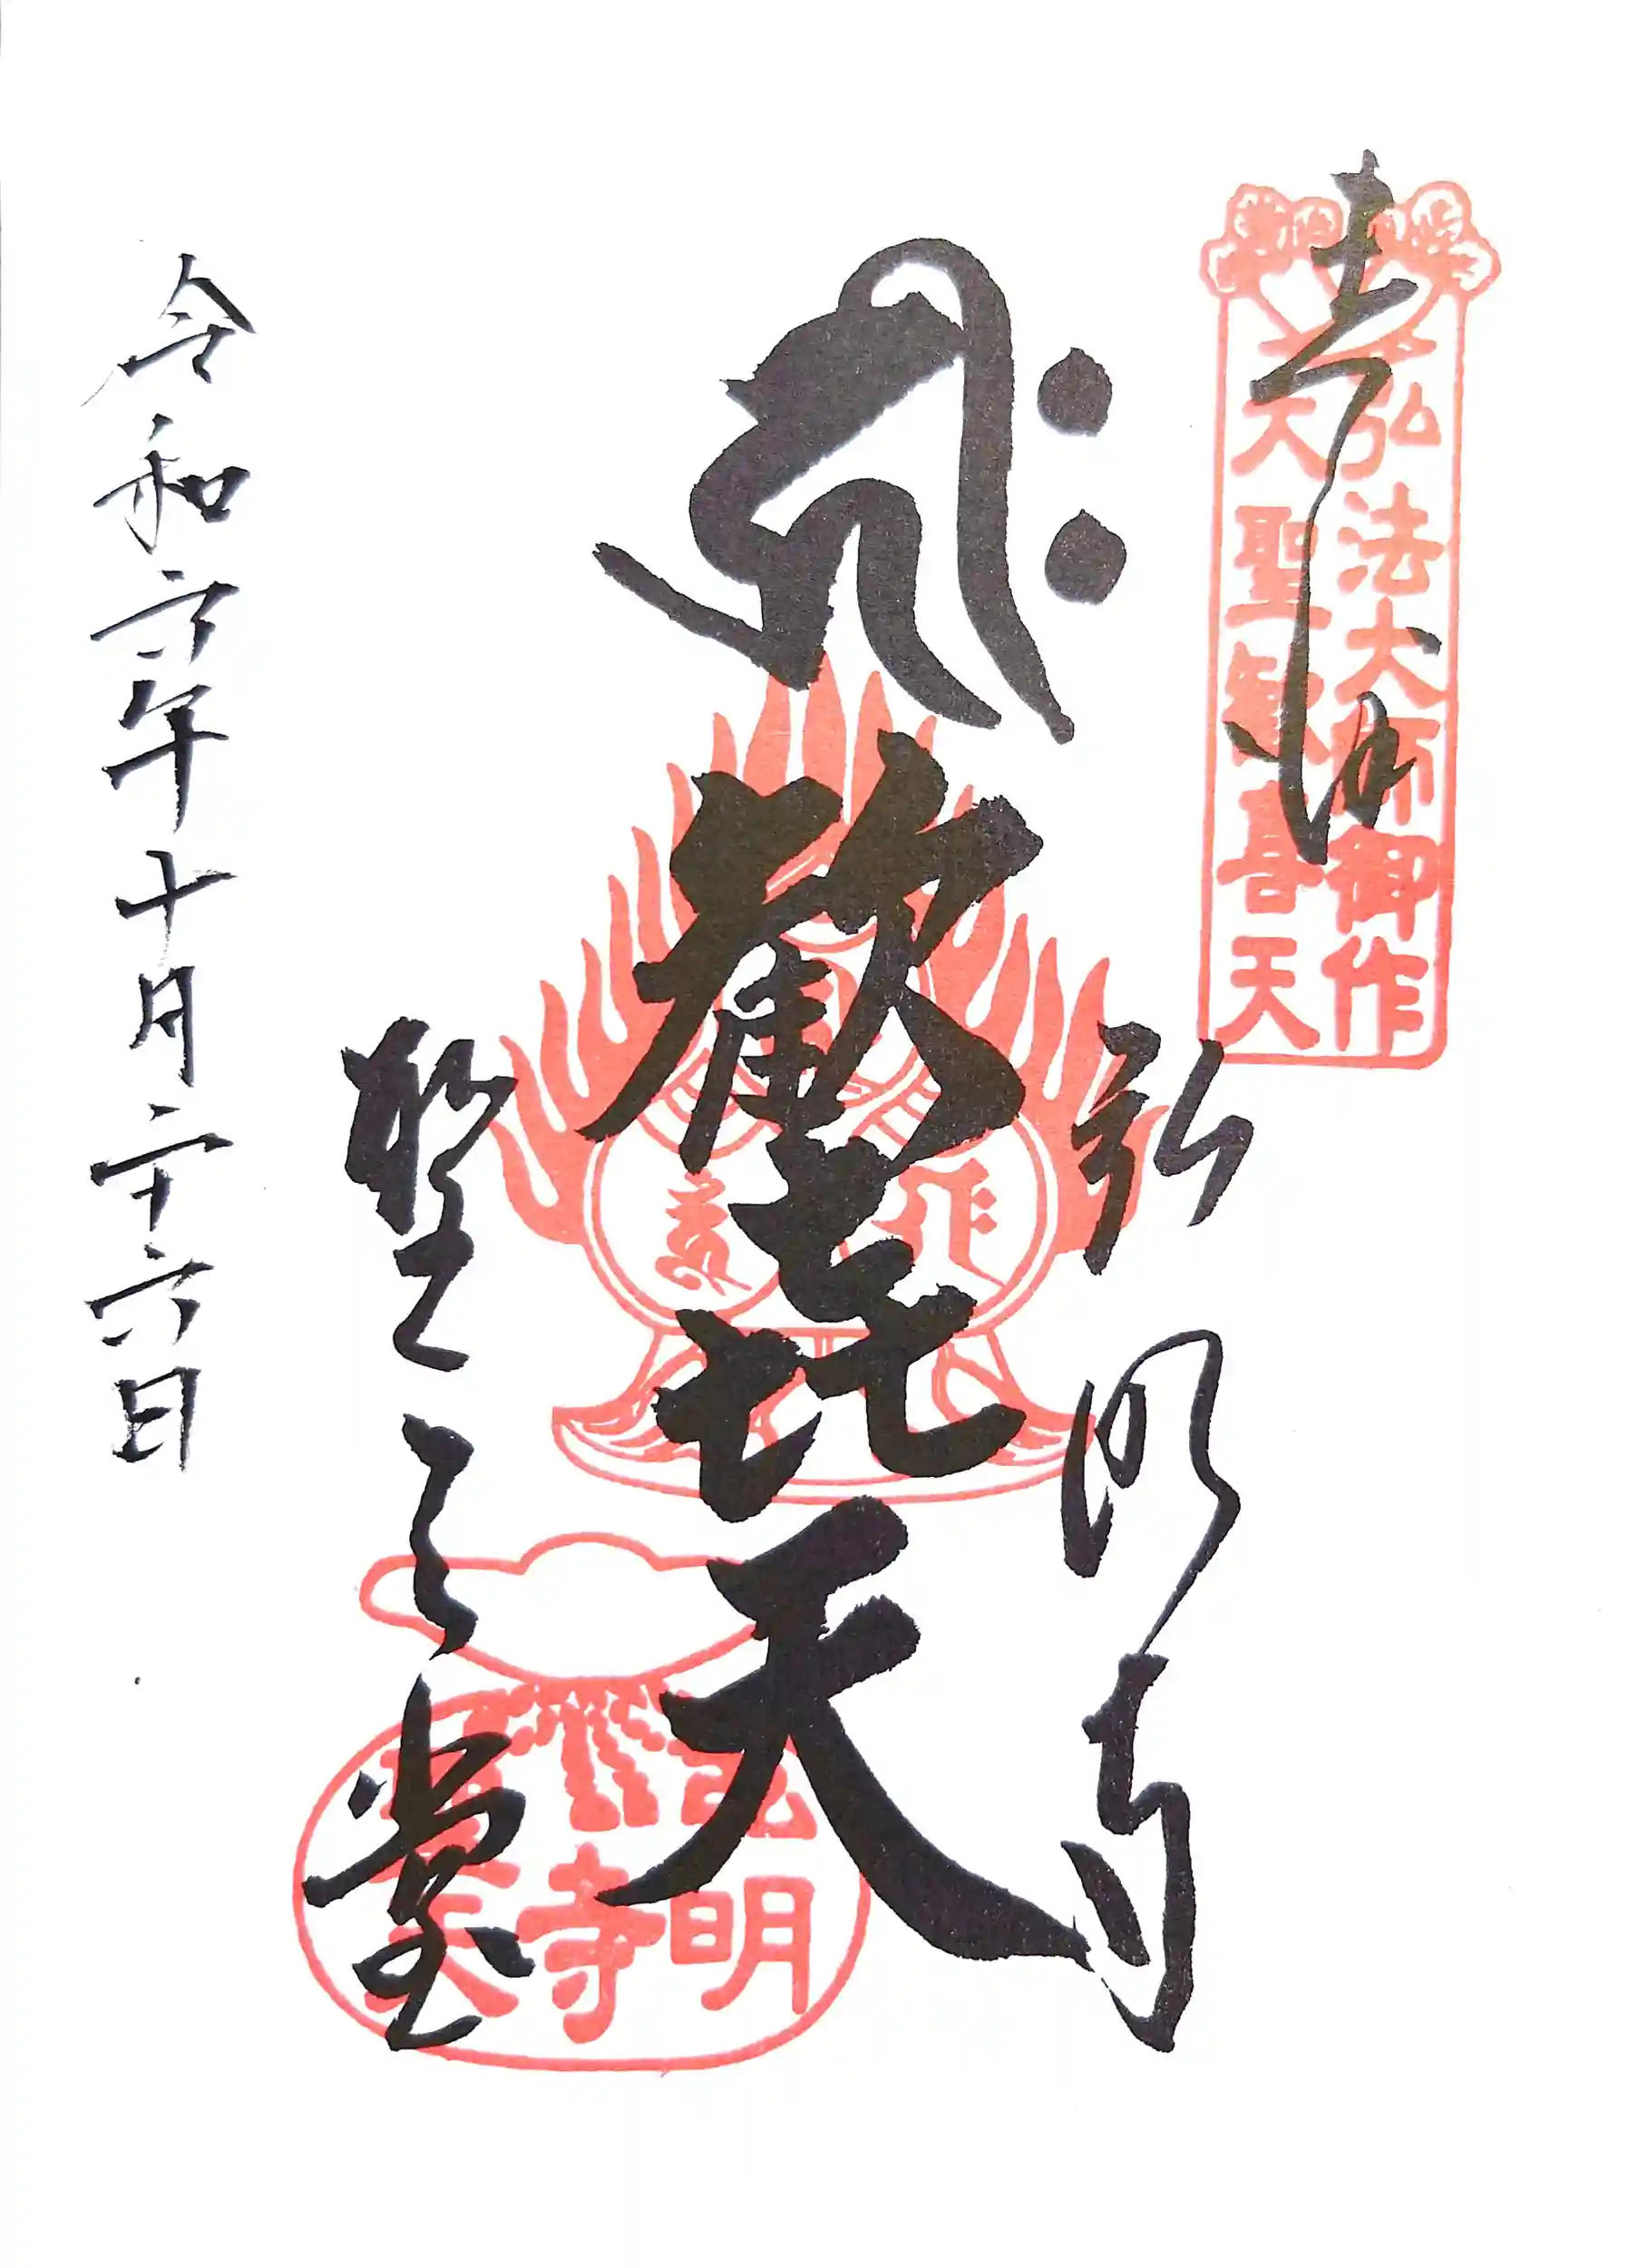 奉拝
弘法大師御作
大聖歓喜天
弘明寺
歓喜天
聖天堂
弘明寺
令和六年十月二十六日